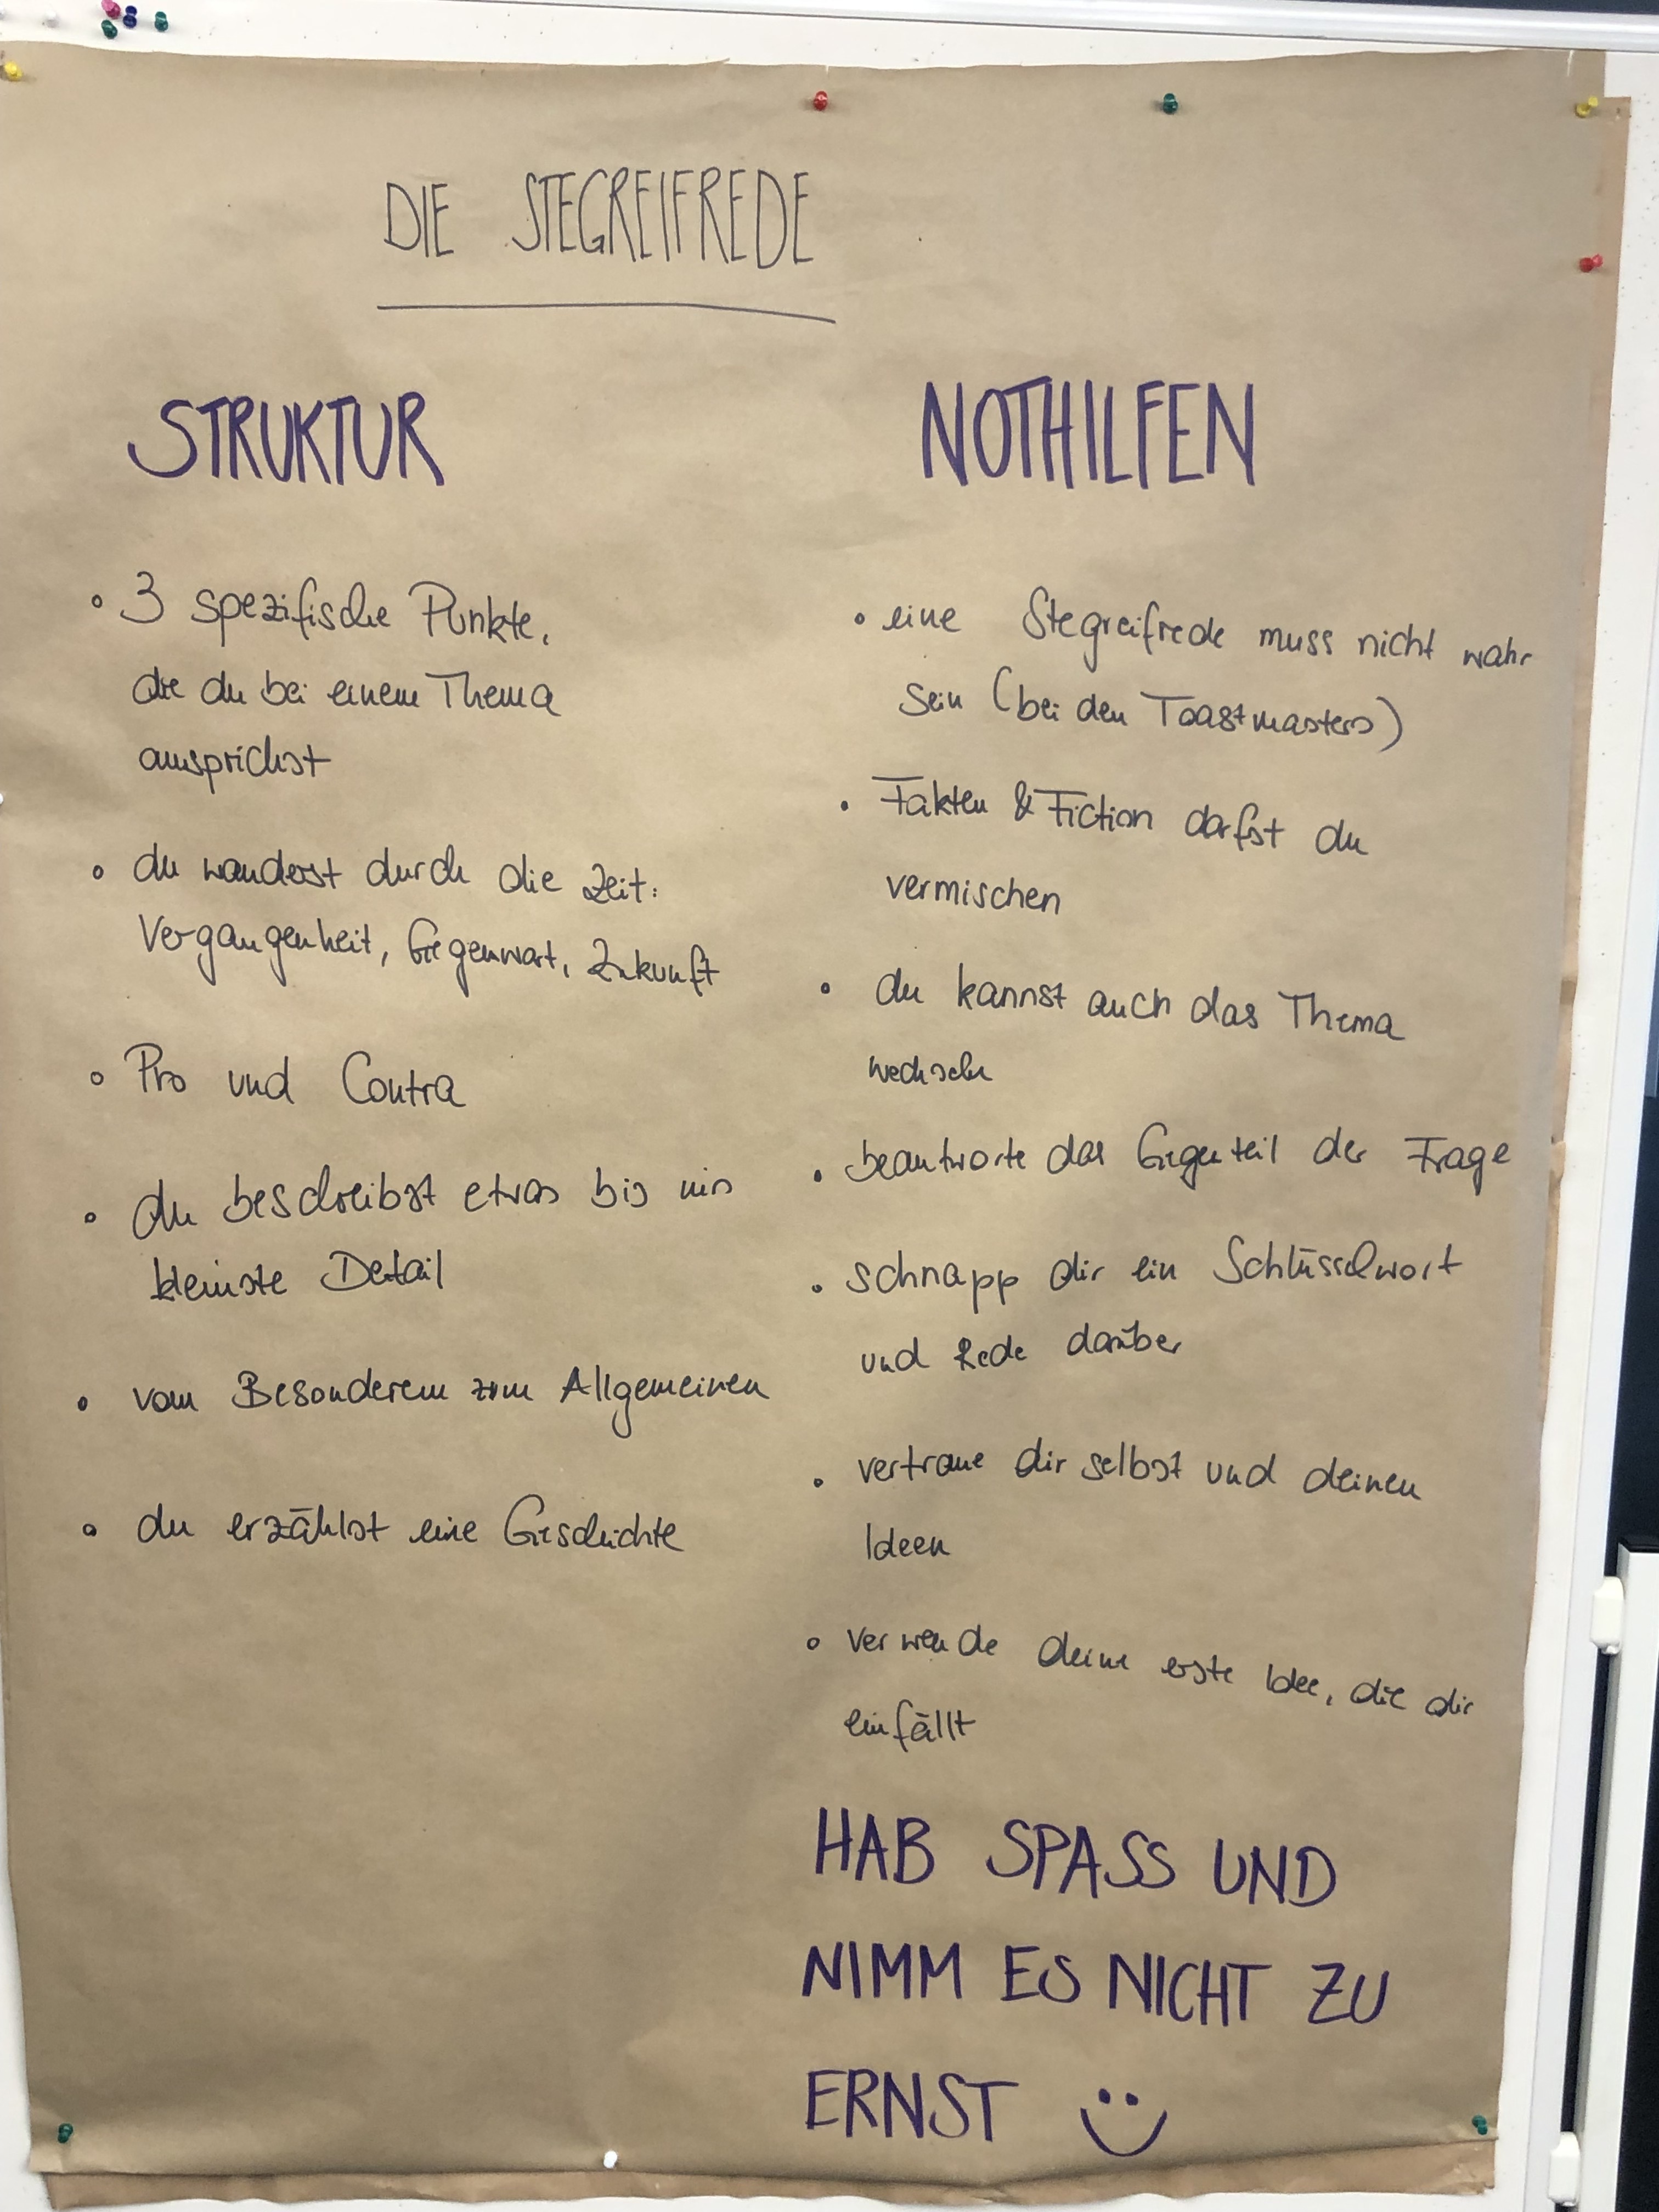 DIE STEGREIFREDE
STRUKTUR
° 3 spezifische Punkte,
die du bei einem Thema
ansprichst
° du wanderst durch die Zeit:
Vergangenheit, Gegenwart, Zukunft
° Pro und Contra
° du beschreibst etwas bis ins
kleinste Detail
° vom Besonderem zum Allgemeinen
° du erzählst eine Geschichte
NOTHILFEN
° eine Stegreifrede muss nicht wahr
sein (bei den Toastmasters)
• Fakten & Fiction darfst du
vermischen
° du kannst auch das Thema
wechseln
• beantworte das Gegenteil der Frage
• schnapp dir ein Schlüsselwort
und Rede darüber
• vertraue dir selbst und deinen
Ideen
° verwende deine erste Idee, die dir
einfällt
HAB SPASS UND
NIMM ES NICHT ZU
ERNST